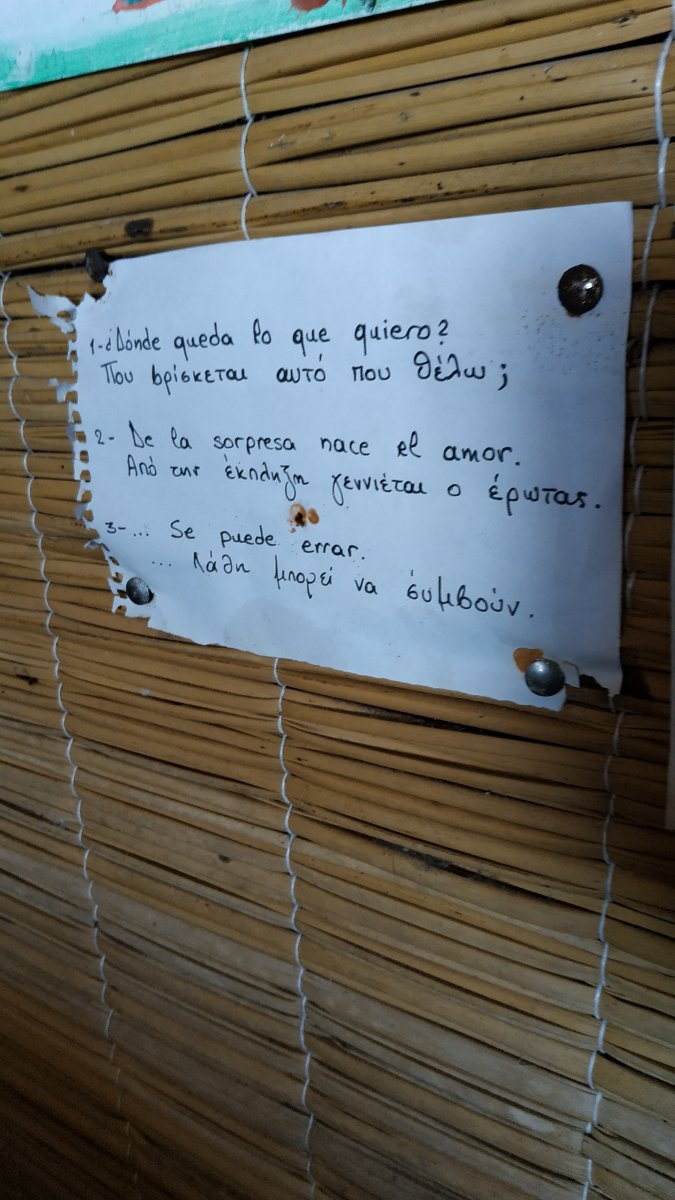 1-¿Dónde queda lo que quiero?
Που βρίσκεται αυτό που θέλω;
2- De la sorpresa nace el amor.
Από την έκπληξη γεννιέται ο έρωτας.
3-... Se puede errar.
... Λάθη μπορεί να συμβούν.